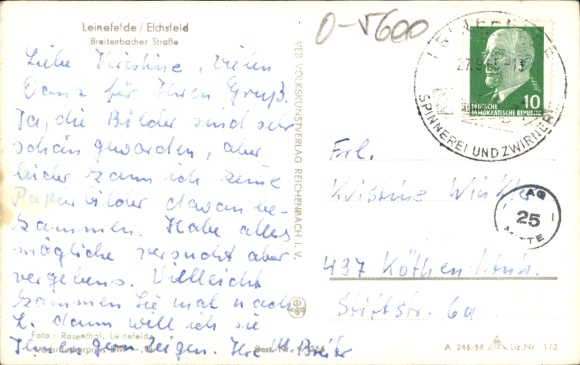 Leinefelde / Eichsfeld
Breitenbacher Straße
0-5600
Liebe Christine, vielen
Dank für Ihren Gruß.
Ja, die Bilder sind sehr
schön geworden, aber
leider kann ich keine
Papierbilder davon be-
kommen. Habe alles
mögliche versucht aber
vergebens. Vielleicht
kommen Sie mal nach
L. dann will ich sie
Ihnen gern zeigen. Ihre
Foto: Rosenthal, Leinefelde
VEB VOLKSKUNSTVERLAG REICHENBACH I. V.
LEINEFELDE
SPINNEREI UND ZWIRNEREI
10
DEUTSCHE
DEMOKRATISCHE REPUBLIK
Frl.
AG
25
MITTE
437 Köthen/Anh.
Stiftstr. 6a
A 246/66 Liz.Nr. 1/2